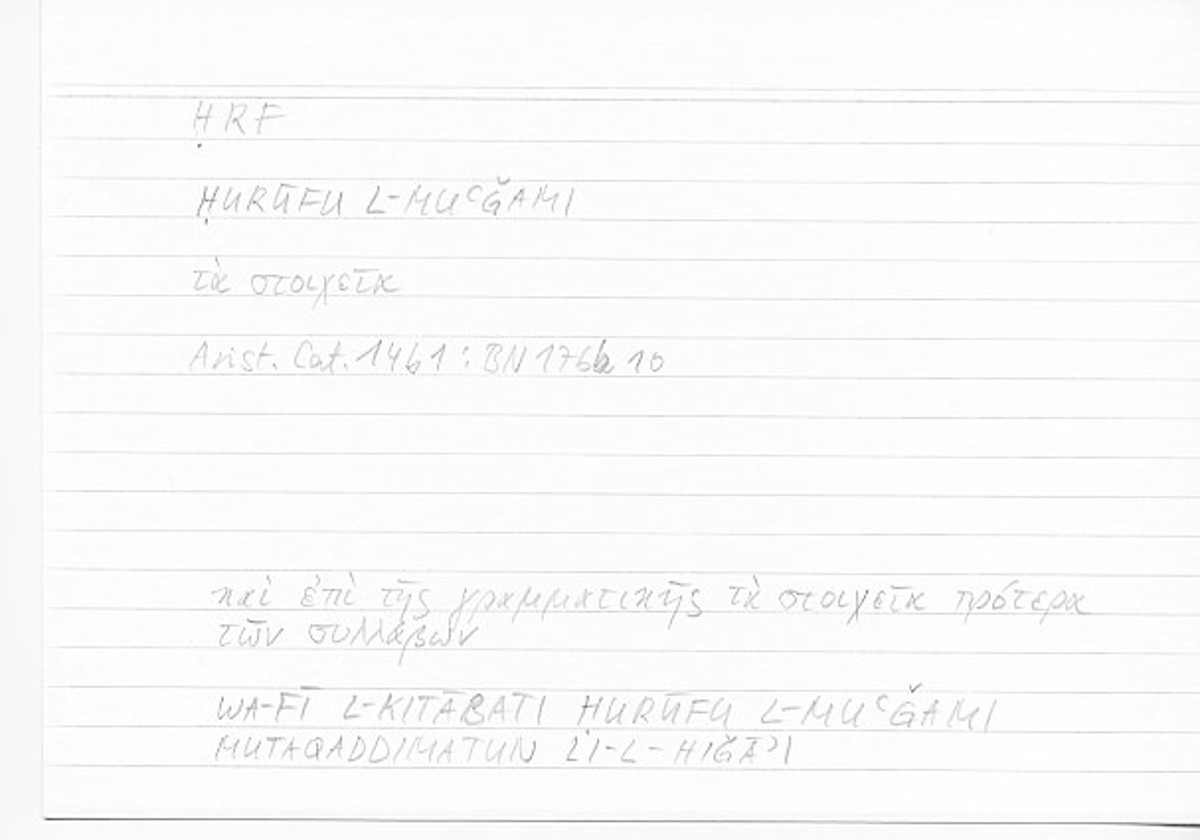 ḤRF
ḤURŪFU L-MUʿǦAMI
τὰ στοιχεῖα
Arist. Cat. 14b1 : BN 176b 10
καὶ ἐπὶ τῆς γραμματικῆς τὰ στοιχεῖα πρότερα
τῶν συλλαβῶν
WA-FĪ L-KITĀBATI ḤURŪFU L-MUʿǦAMI
MUTAQADDIMATUN LI-L-HIǦĀʾI